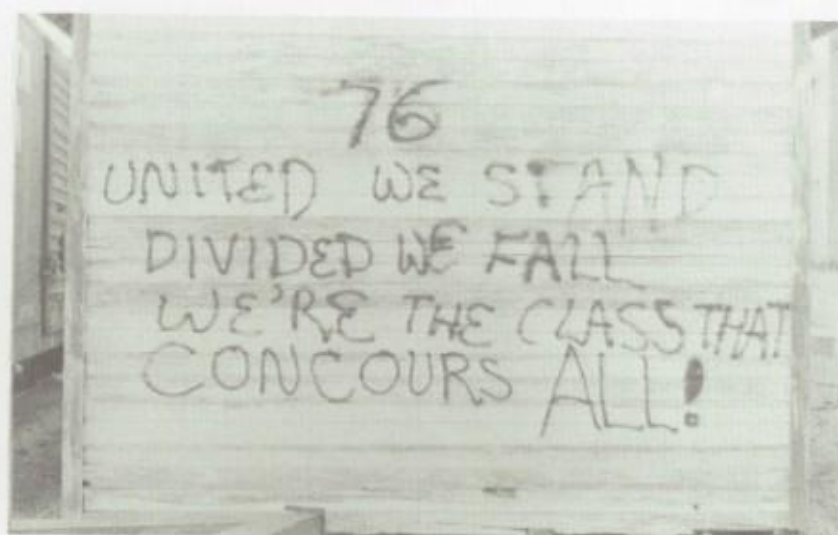 76
UNITED WE STAND
DIVIDED WE FALL
WE'RE THE CLASS THAT
CONCOURS ALL!